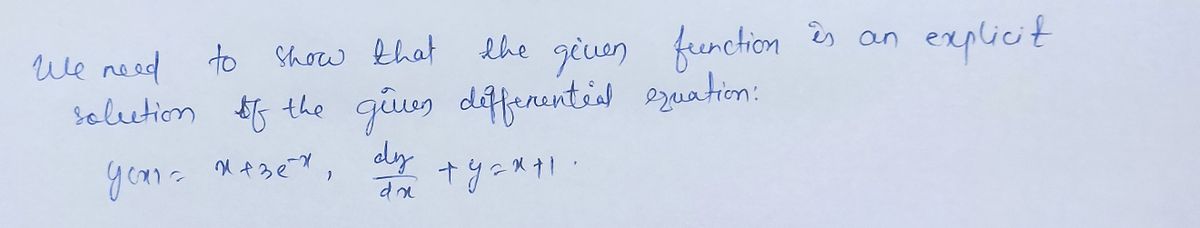 We need to show that the given function is an explicit
solution of the given differential equation:
y(x) = x + 3e^{-x}, dy/dx + y = x + 1.